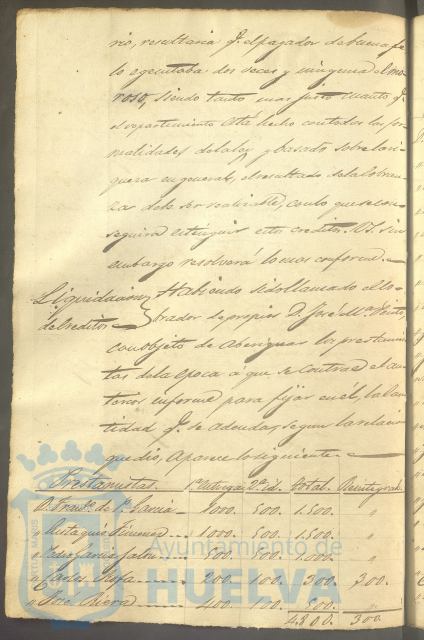 rio, resultaria q.e el pagador de buena fe
lo egecutaba dos veces y ninguna el mo-
roso, siendo tanto mas justo cuanto q.e
el repartimiento está hecho con todas las for-
malidades de la ley y basado sobre la ri-
queza en general, el resultado de la cobran-
za debe ser realizable, con lo que se con-
seguirá estinguir estos creditos. V.S. sin
embargo resolverá lo mas conforme.
Liquidacion Habiendo sido llamado el co-
de creditos brador de propios D. José M.a
con objeto de averiguar los prestamis-
tas de la epoca á que se contrae el an-
terior informe para fijar en él, la can-
tidad q.e se adeuda, segun la relacion
que dió, aparece lo siguiente
Prestamistas. 1.a entrega 2.a id. total. Reintegrado
D. Fran.co de P. Garcia 1000. 500. 1.500. "
" Eustaquio Jimenez 1000. 500. 1.500. "
" Garcia 500. 500. 1.000. "
" 200. 100. 300. 300.
" José 400. 100. 500. "
4.800. 300
Ayuntamiento de
HUELVA